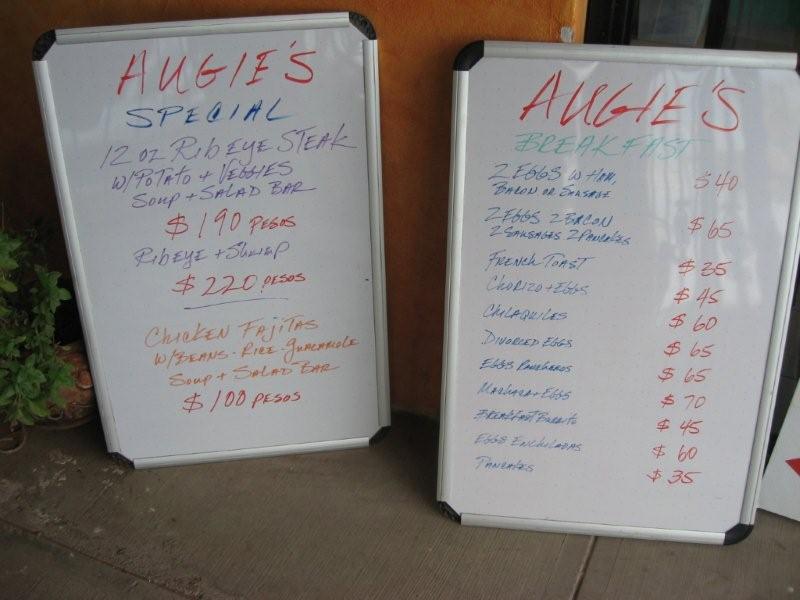 AUGIE'S
SPECIAL
12 OZ RIB EYE STEAK
W/POTATO + VEGGIES
SOUP + SALAD BAR
$190 PESOS
RIBEYE + SHRIMP
$220 PESOS
CHICKEN FAJITAS
W/BEANS - RICE - GUACAMOLE
SOUP + SALAD BAR
$100 PESOS
AUGIE'S
BREAKFAST
2 EGGS W HAM, $40
BACON OR SAUSAGE
2 EGGS 2 BACON $65
2 SAUSAGES 2 PANCAKES
FRENCH TOAST $35
CHORIZO + EGGS $45
CHILAQUILES $60
DIVORCED EGGS $65
EGGS RANCHEROS $65
MACHACA + EGGS $70
BREAKFAST BURRITO $45
EGGS ENCHILADAS $60
PANCAKES $35